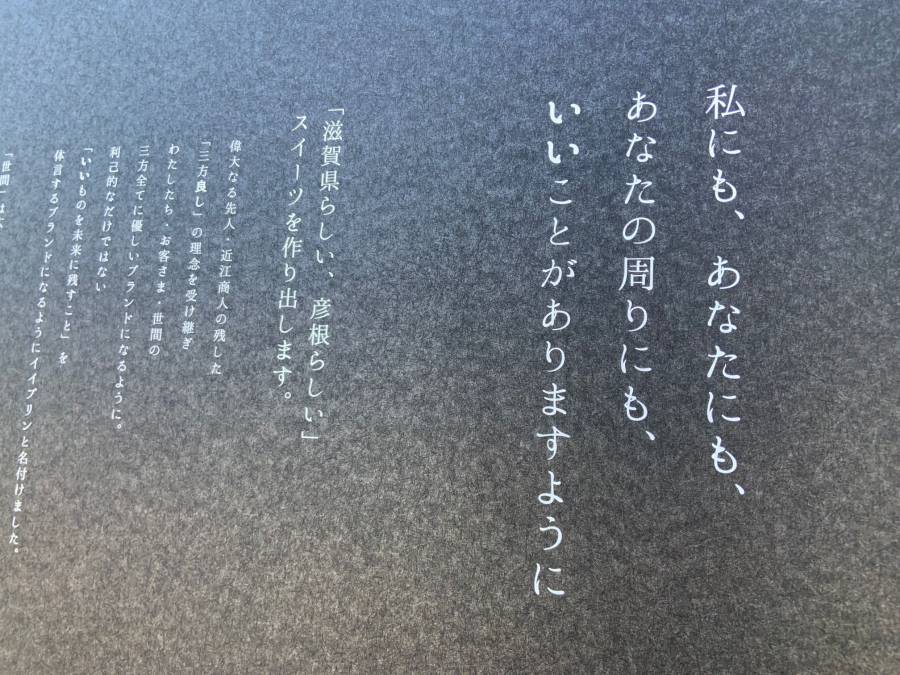 私にも、あなたにも、
あなたの周りにも、
いいことがありますように
「滋賀県らしい、彦根らしい」
スイーツを作り出します。
偉大なる先人・近江商人の残した
「三方良し」の理念を受け継ぎ
わたしたち・お客さま・世間の
三方全てに優しいブランドになるように。
利己的なだけではない
「いいものを未来に残すこと」を
体言するブランドになるようにイイプリンと名付けました。
「世間」は、